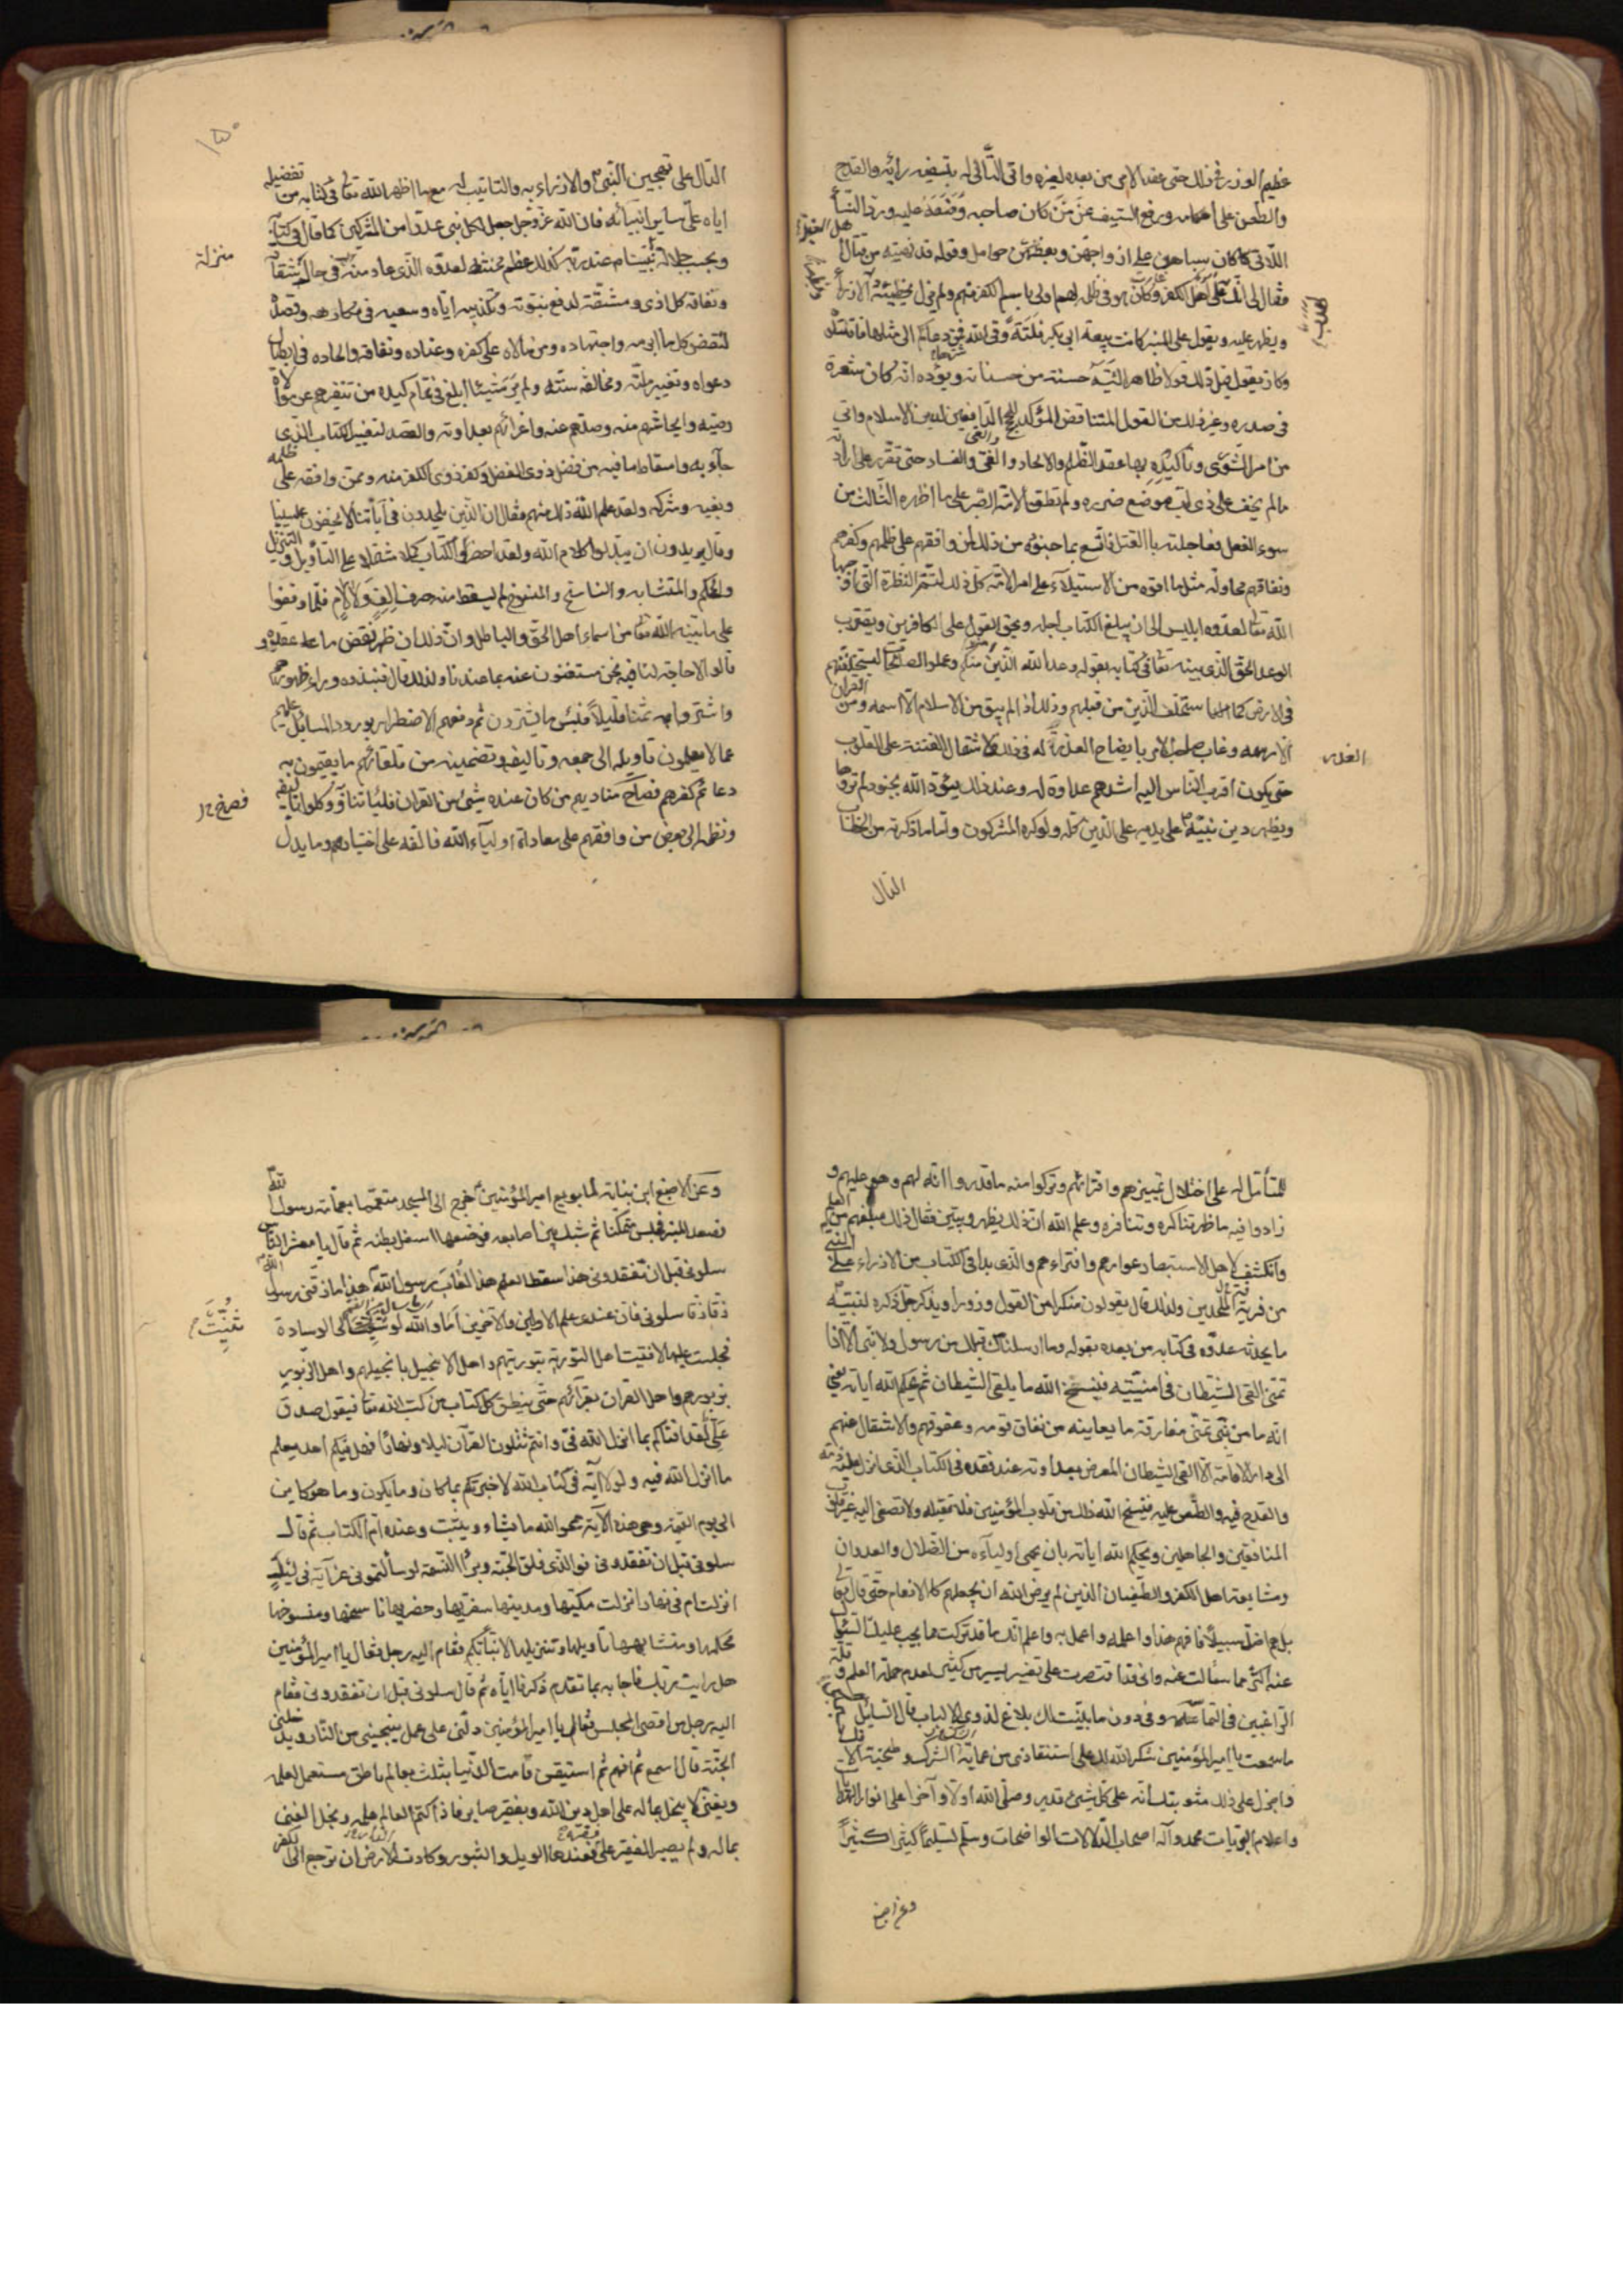 عظيم الوزر في ذلك حتى عقد الامر من بعده لغيره واتى التالي له بتسفيه رأيه والقدح
والطعن على احكامه ورفع السيف عمن كان صاحبه وضعه عليه ورد النسأ
اللاتي كان سباهن على ازواجهن وبعضهن حوامل وقوله قد نهيته عن قتال اهل القبلة
فقال لي انك على اهل الكفر وكان هو في ظلمه لهم اولى باسم الكفر منهم ولم يزل يخطئه
ويظهر عليه ويقول على المنبر كانت بيعة ابي بكر فلتة وقى الله شرها فمن دعاكم الى مثلها فاقتلوه
وكان يقول قبل ذلك قولا ظاهرا ليته حسنة من حسناته ويوده انه كان شعرة
في صدره وغير ذلك من القول المتناقض المؤكد لحجج الدافعين لدين الاسلام واتى
من امر الشورى وتأكيده بها عقد الظلم والالحاد والغي والفساد حتى تقرر على ارادته
مالم يخف على ذي لب موضع ضرره ولم تطق الامة الصبر على ما اظهره الثالث من
سوء الفعل فعاجلته بالقتل فاتسع بما جنوه من ذلك لمن وافقهم على ظلمهم وكفرهم
ونفاقهم محاولة مثل ما اتوه من الاستيلاء على امر الامة كل ذلك لتتم النظرة التي اوجبها
الله تعالى لعدوه ابليس الى ان يبلغ الكتاب اجله ويحق القول على الكافرين ويقترب
الوعد الحق الذي بينه تعالى في كتابه بقوله وعد الله الذين منكم وعملوا الصالحات ليستخلفنهم
في الارض كما استخلف الذين من قبلهم وذلك اذا لم يبق من الاسلام الا اسمه ومن القران
الا رسمه وغاب صاحب الامر بايضاح العذر له في ذلك لاشتمال الفتنة على القلوب
حتى يكون اقرب الناس اليه اشدهم عداوة له وعند ذلك يؤيده الله بجنود لم تروها
ويظهر دين نبيه على يديه على الدين كله ولو كره المشركون واما ما ذكرته من الخطاب
الدال
الدال على تهجين النبي والازراء به والتانيب له مع ما اظهر الله تعالى في كتابه من تفضيله
اياه على ساير انبيآئه فان الله عز وجل جعل لكل نبي عدوا من المشركين كما قال في كتابه
وبحسب جلالة نبينا عند ربه كذلك عظم محنته لعدوه الذي عاد منه في حال شقاقه
ونفاقه كل اذى ومشقة لدفع نبوته وتكذيبه اياه وسعيه في مكارهه وقصده
لنقض كل ما ابرمه واجتهاده ومن مالاه على كفره وعناده ونفاقه والحاده في ابطال
دعواه وتغيير ملته ومخالفة سنته ولم ير شيئا ابلغ في تمام كيده من تنفيرهم عن موالاة
وصيه وايحاشهم منه وصدهم عنه واغرائهم بعداوته والقصد لتغيير الكتاب الذي
جاء به واسقاط ما فيه من فضل ذوي الفضل وكفر ذوي الكفر منه وممن وافقه على ظلمه
وبغيه وشركه ولقد علم الله ذلك منهم فقال ان الذين يلحدون في آياتنا لا يخفون علينا
وقال يريدون ان يبدلوا كلام الله ولقد احضروا الكتاب كملا مشتملا على التأويل والتنزيل
والمحكم والمتشابه والناسخ والمنسوخ لم يسقط منه حرف الف ولا لام فلما وقفوا
على ما بينه الله تعالى من اسماء اهل الحق والباطل وان ذلك ان ظهر نقض ما عقدوه
قالوا لا حاجة لنا فيه نحن مستغنون عنه بما عندنا ولذلك قال فنبذوه وراء ظهورهم
واشتروا به ثمنا قليلا فبئس ما يشترون ثم دفعهم الاضطرار بورود المسائل عليهم
عما لا يعلمون تاويله الى جمعه وتاليفه وتضمينه من تلقائهم ما يقيمون به
دعائم كفرهم فصاح مناديهم من كان عنده شئ من القران فلياتنا به ووكلوا تاليفه
ونظمه الى بعض من وافقهم على معاداة اولياء الله فالفه على اختيارهم وما يدل
منزلة
للمتأمل له على اختلال تمييزهم وافترائهم وتركوا منه ما قدروا انه لهم وهو عليهم و
زادوا فيه ما ظهر تناكره وتنافره وعلم الله ان ذلك يظهر ويبين فقال ذلك مبلغهم من العلم
وانكشف لاهل الاستبصار عوارهم وافتراءهم والذي بدا في الكتاب من الازراء على النبي
من فرية الملحدين ولذلك قال يقولون منكرا من القول وزورا ويذكر جل ذكره لنبيه
ما يحدثه عدوه في كتابه من بعده بقوله وما ارسلناك قبلك من رسول ولا نبي الا اذا
تمنى القى الشيطان في امنيته فينسخ الله ما يلقى الشيطان ثم يحكم الله اياته يعني
انه ما من نبي تمنى مفارقة ما يعاينه من نفاق قومه وعقوقهم والانتقال عنهم
الى دار الاقامة الا القى الشيطان المعرض بعداوته عند فقده في الكتاب الذي انزل عليه ذمه
والقدح فيه والطعن عليه فينسخ الله ذلك من قلوب المؤمنين فلا تقبله ولا تصغى اليه غير قلوب
المنافقين والجاهلين ويحكم الله اياته بان يحمى اولياءه من الضلال والعدوان
ومشايعة اهل الكفر والطغيان الذين لم يرض الله ان يجعلهم كالانعام حتى قال
بل هم اضل سبيلا فافهم هذا واعلمه واعمل به واعلم انك ما قد تركت مما يجب عليك السؤال
عنه اكثر مما سألت عنه واني قد اقتصرت على تفسير يسير من كثير لعدم حملة العلم وقلة
الراغبين في التماسه وفي دون ما بينت لك بلاغ لذوي الالباب قال السايل حسبي
ما سمعت يا امير المؤمنين شكر الله لك على استنقاذي من عماية الشرك وطخية الافك
واجزل على ذلك مثوبتك انه على كل شئ قدير وصلى الله اولا وآخرا على انوار الهدايات
واعلام البريات محمد وآله اصحاب الدلالات الواضحات وسلم تسليما كثيرا كثيرا
وعن اصبغ
وعن الاصبغ ابن نباتة لما بويع امير المؤمنين خرج الى المسجد متعمما بعمامة رسول الله
فصعد المنبر فجلس متمكنا ثم شبك بين اصابعه فوضعها اسفل بطنه ثم قال يا معشر الناس
سلوني قبل ان تفقدوني هذا سفط العلم هذا لعاب رسول الله هذا ما زقني رسول الله
زقا زقا سلوني فان عندي علم الاولين والآخرين اما والله لو ثنيت لي الوسادة
فجلست عليها لافتيت اهل التورية بتوريتهم واهل الانجيل بانجيلهم واهل الزبور
بزبورهم واهل القران بقرآنهم حتى ينطق كل كتاب من كتب الله تعالى فيقول صدق
علي لقد افتاكم بما انزل الله في وانتم تتلون القرآن ليلا ونهارا فهل فيكم احد يعلم
ما انزل الله فيه ولولا آية في كتاب الله لاخبرتكم بما كان وما يكون وما هو كاين
الى يوم القيمة وهي هذه الآية يمحو الله ما يشاء ويثبت وعنده ام الكتاب ثم قال
سلوني قبل ان تفقدوني فو الذي فلق الحبة وبرأ النسمة لو سألتموني عن آية في ليل
انزلت ام في نهار انزلت مكيها ومدنيها سفريها وحضريها ناسخها ومنسوخها
محكمها ومتشابهها تاويلها وتنزيلها لانبأتكم فقام اليه رجل فقال يا امير المؤمنين
هل رايت ربك فاجابه بما تقدم ذكرنا اياه ثم قال سلوني قبل ان تفقدوني فقام
اليه رجل من اقصى المجلس فقال يا امير المؤمنين دلني على عمل ينجيني من النار ويدخلني
الجنة قال اسمع ثم افهم ثم استيقن قامت الدنيا بثلث بعالم ناطق مستعمل لعلمه
وبغني لا يبخل بماله على اهل دين الله وبفقير صابر فاذا كتم العالم علمه وبخل الغني
بماله ولم يصبر الفقير على فقره فعندها الويل والثبور وكادت الارض ان ترجع الى الكفر